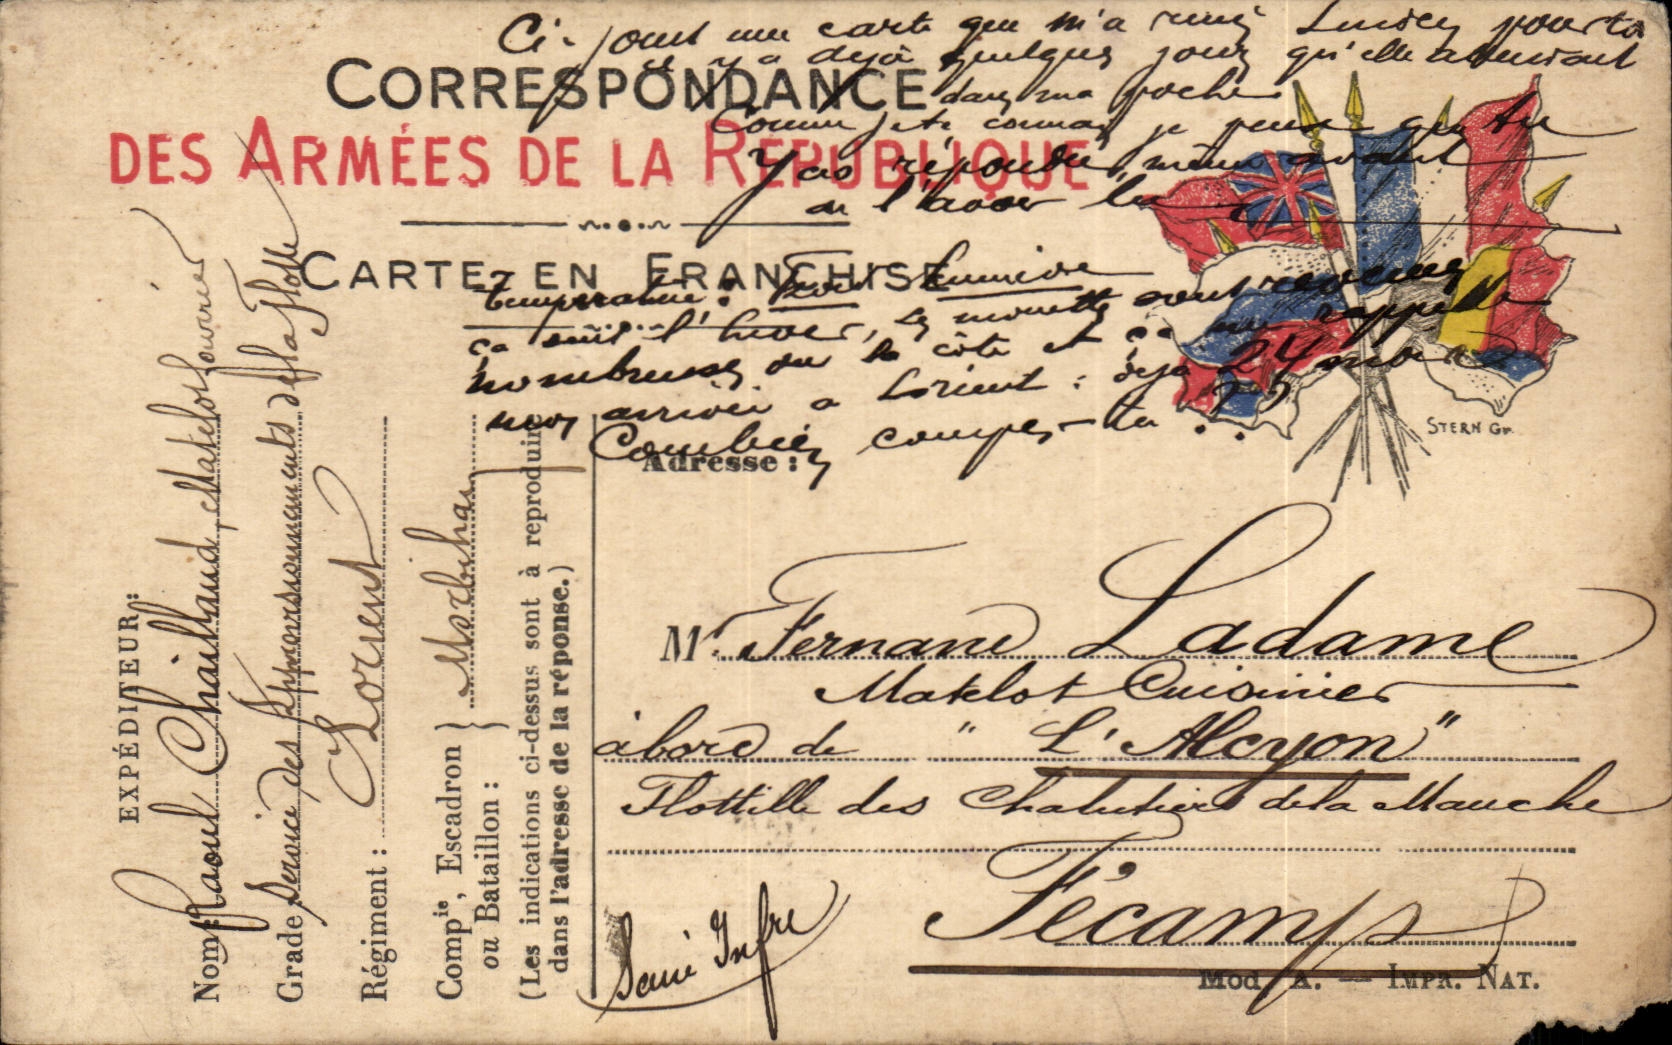 Ci-joint une carte que m'a remis Lucien pour toi
y a déjà quelques jours qu'elle attendait
dans ma poche.
Comme je te connais je pense que tu
y as répondu même avant
de l'avoir lu
CORRESPONDANCE
DES ARMÉES DE LA RÉPUBLIQUE
CARTE EN FRANCHISE
Température :
ça sent l'hiver, les mouettes sont revenues
nombreuses sur la côte et ça me rappelle
mon arrivée à Lorient : déjà 24 mois
25
Combien comptes-tu ..
STERN Gr.
EXPÉDITEUR :
Nom : Raoul Chailland, Matelot fourrier
Grade Service des Approvisionnements de la flotte
Régiment : Lorient
Comp^ie, Escadron
ou Bataillon : } Morbihan
(Les indications ci-dessus sont à reproduire
dans l'adresse de la réponse.)
Adresse :
M^r. Fernand Ladame
Matelot Cuisinier
à bord de "L'Alcyon"
Flottille des Chalutiers de la Manche
Fécamp
Seine Infre
MOD. A. — IMPR. NAT.